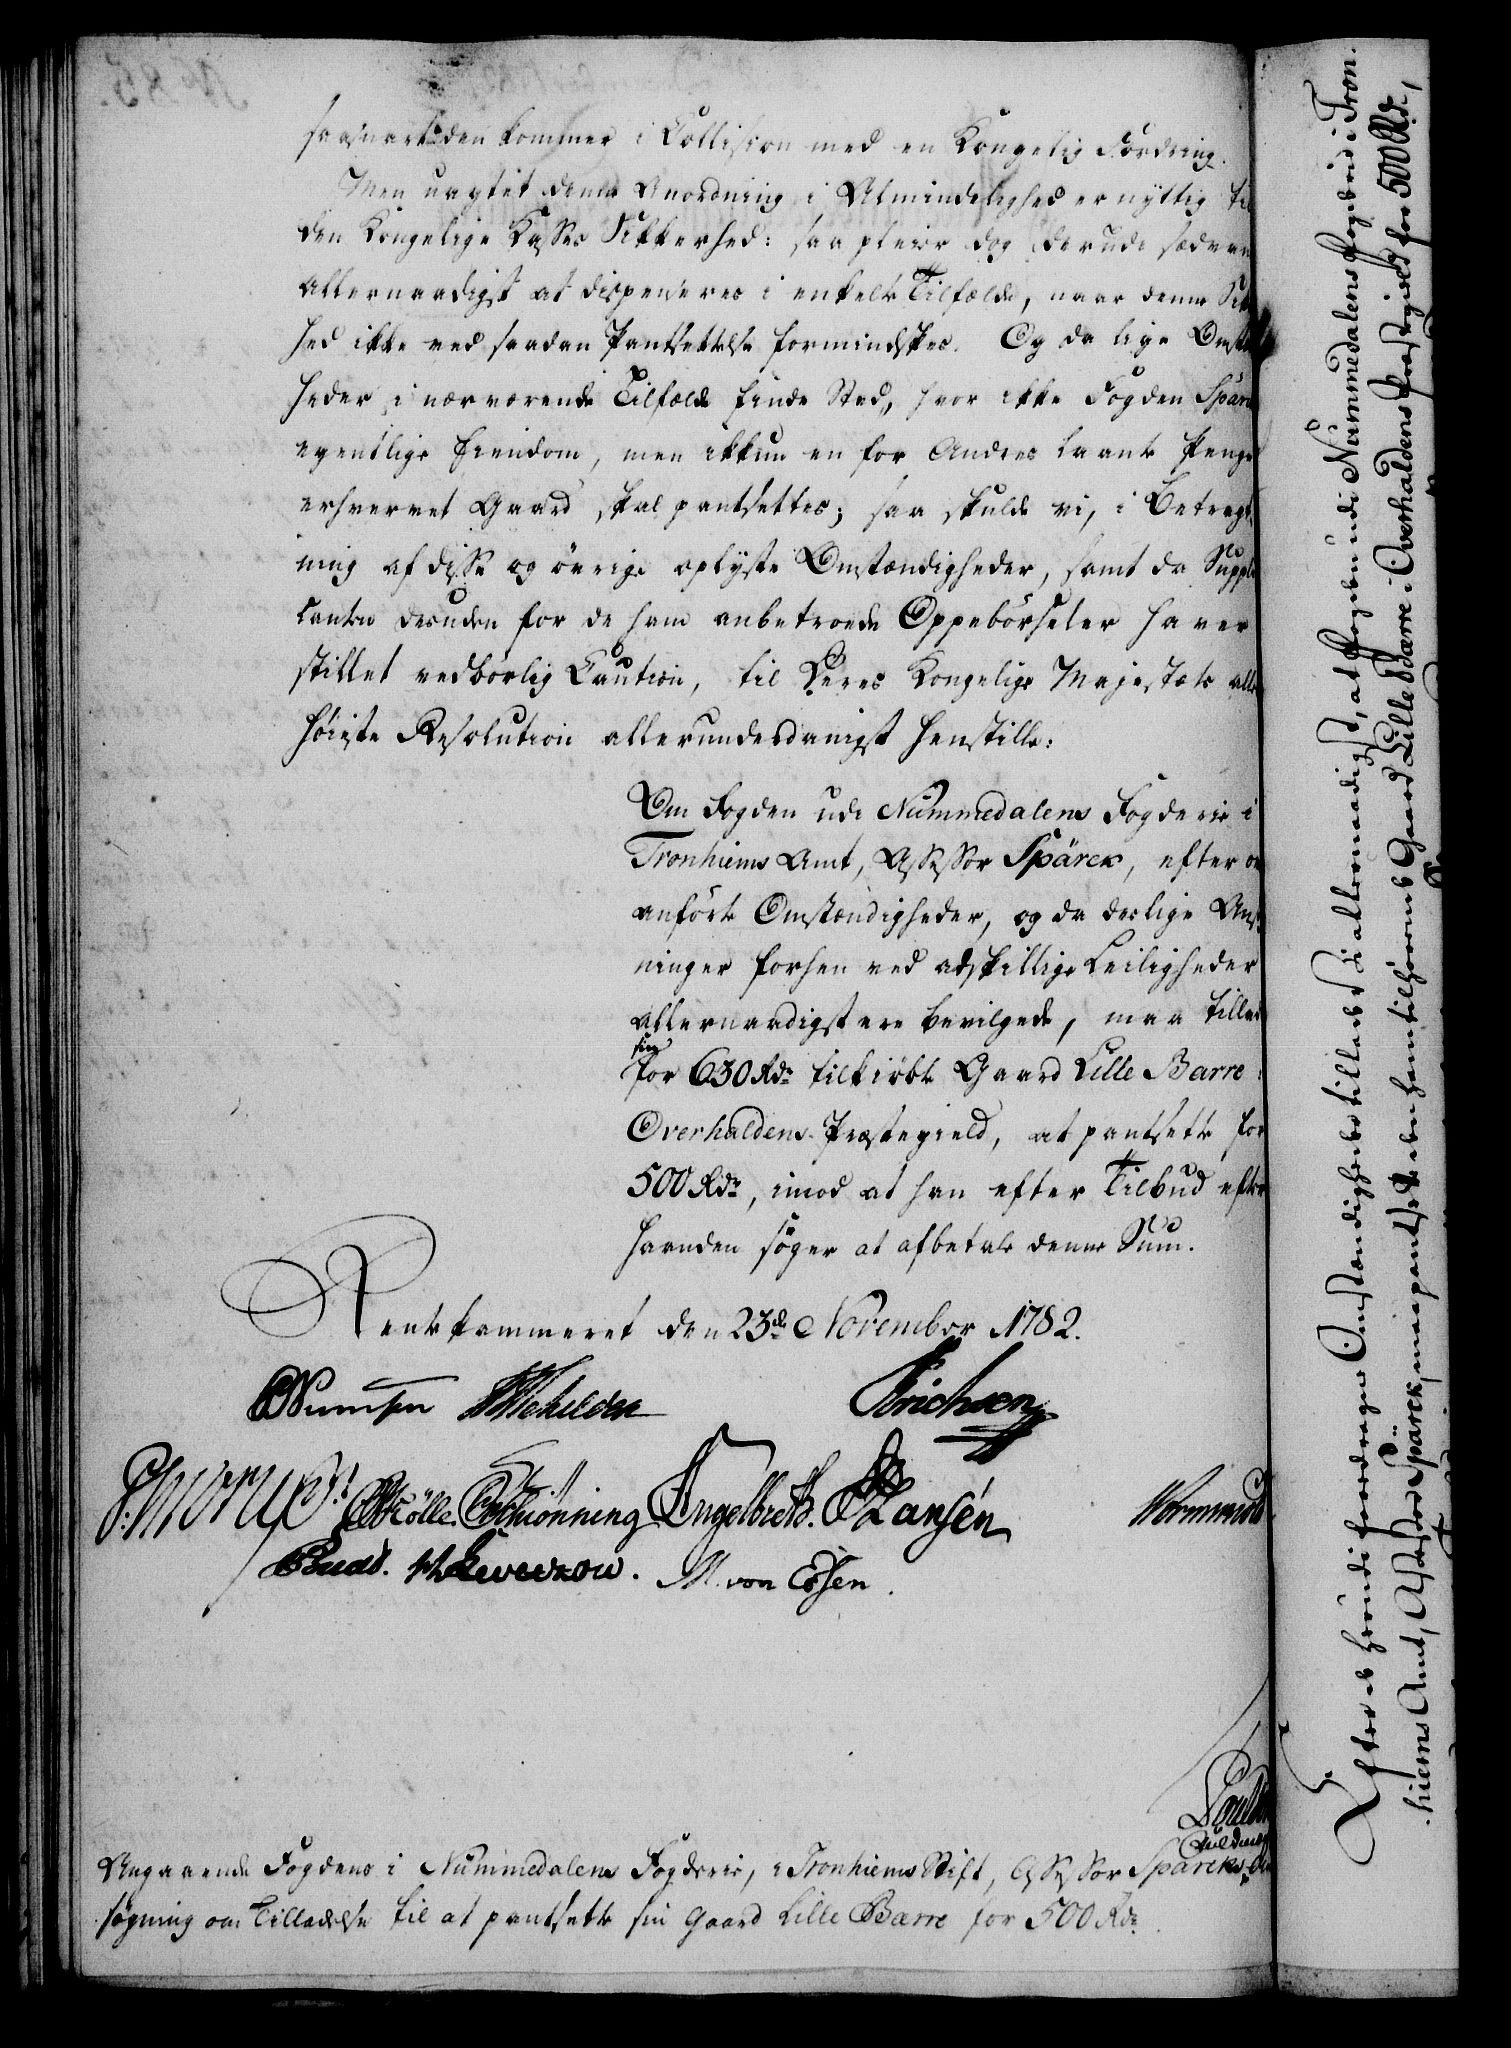 saasnart den kommer i Collision med en Kongelig Fordring.
Men uagtet denne Anordning i Almindelighed er nyttig til
den Kongelige Kasses Sikkerhed: saa pleier dog derudi sædvan
allernaadigst at dispenseres i enkelte Tilfælde, naar denne Sik
hed ikke ved saadan Pantsettelse formindskes. Og da lige Omstæ
heder i nærværende Tilfælde finde Sted, hvor ikke Fogden Spärck
egentlige Eiendom, men ikkun en for Andres laante Penge
erhvervet Gaard skal pantsettes; saa skulde vi, i Betragt-
ning af disse og övrige oplyste Omstændigheder, samt da Suppli
canten desuden for de ham anbetroede Oppebörseler haver
stillet vedbörlig Caution, til Deres Kongelige Majestæts aller
höieste Resolution allerunderdanigst henstille:
Om Fogden udi Nummedalens Fogderie i
Tronhiems Amt, Assessor Spärck, efter
anförte Omstændigheder, og da deslige Ans
ninger forhen ved adskillige Leiligheder
allernaadigst ere bevilgede, maa tillad
sin
for 630 Rdr tilkiöbte Gaard Lille Barre i
Overhaldens Præstegield, at pantsette for
500 Rdr, imod at han efter Tilbud efter
haanden söger at afbetale denne Sum.
Rentekammeret den 23de November 1782.
Numsen Schilden Erichsen
Morup Mölle Schiönning Engelbreth. Hansén Wormskiold
Buds. Levetzow. M. von Essen.
Angaaende Fogdens i Nummedalens Fogderie, i Tronhiems Stift, Assessor Spärcks An-
søgning om Tilladelse til at pantsette sin Gaard Lille Bærre for 500 Rdr.
Efter de herudi foredragne Omstændigheder tillade Vi allernaadigst, at Fogden udi Nummedalens Fogderie i Tron-
hiems Amt, Assessor Spärck, maa pantsette den ham tilhörende Gaard Lille Bærre i Overhaldens Præstegield for 500 Rdr,